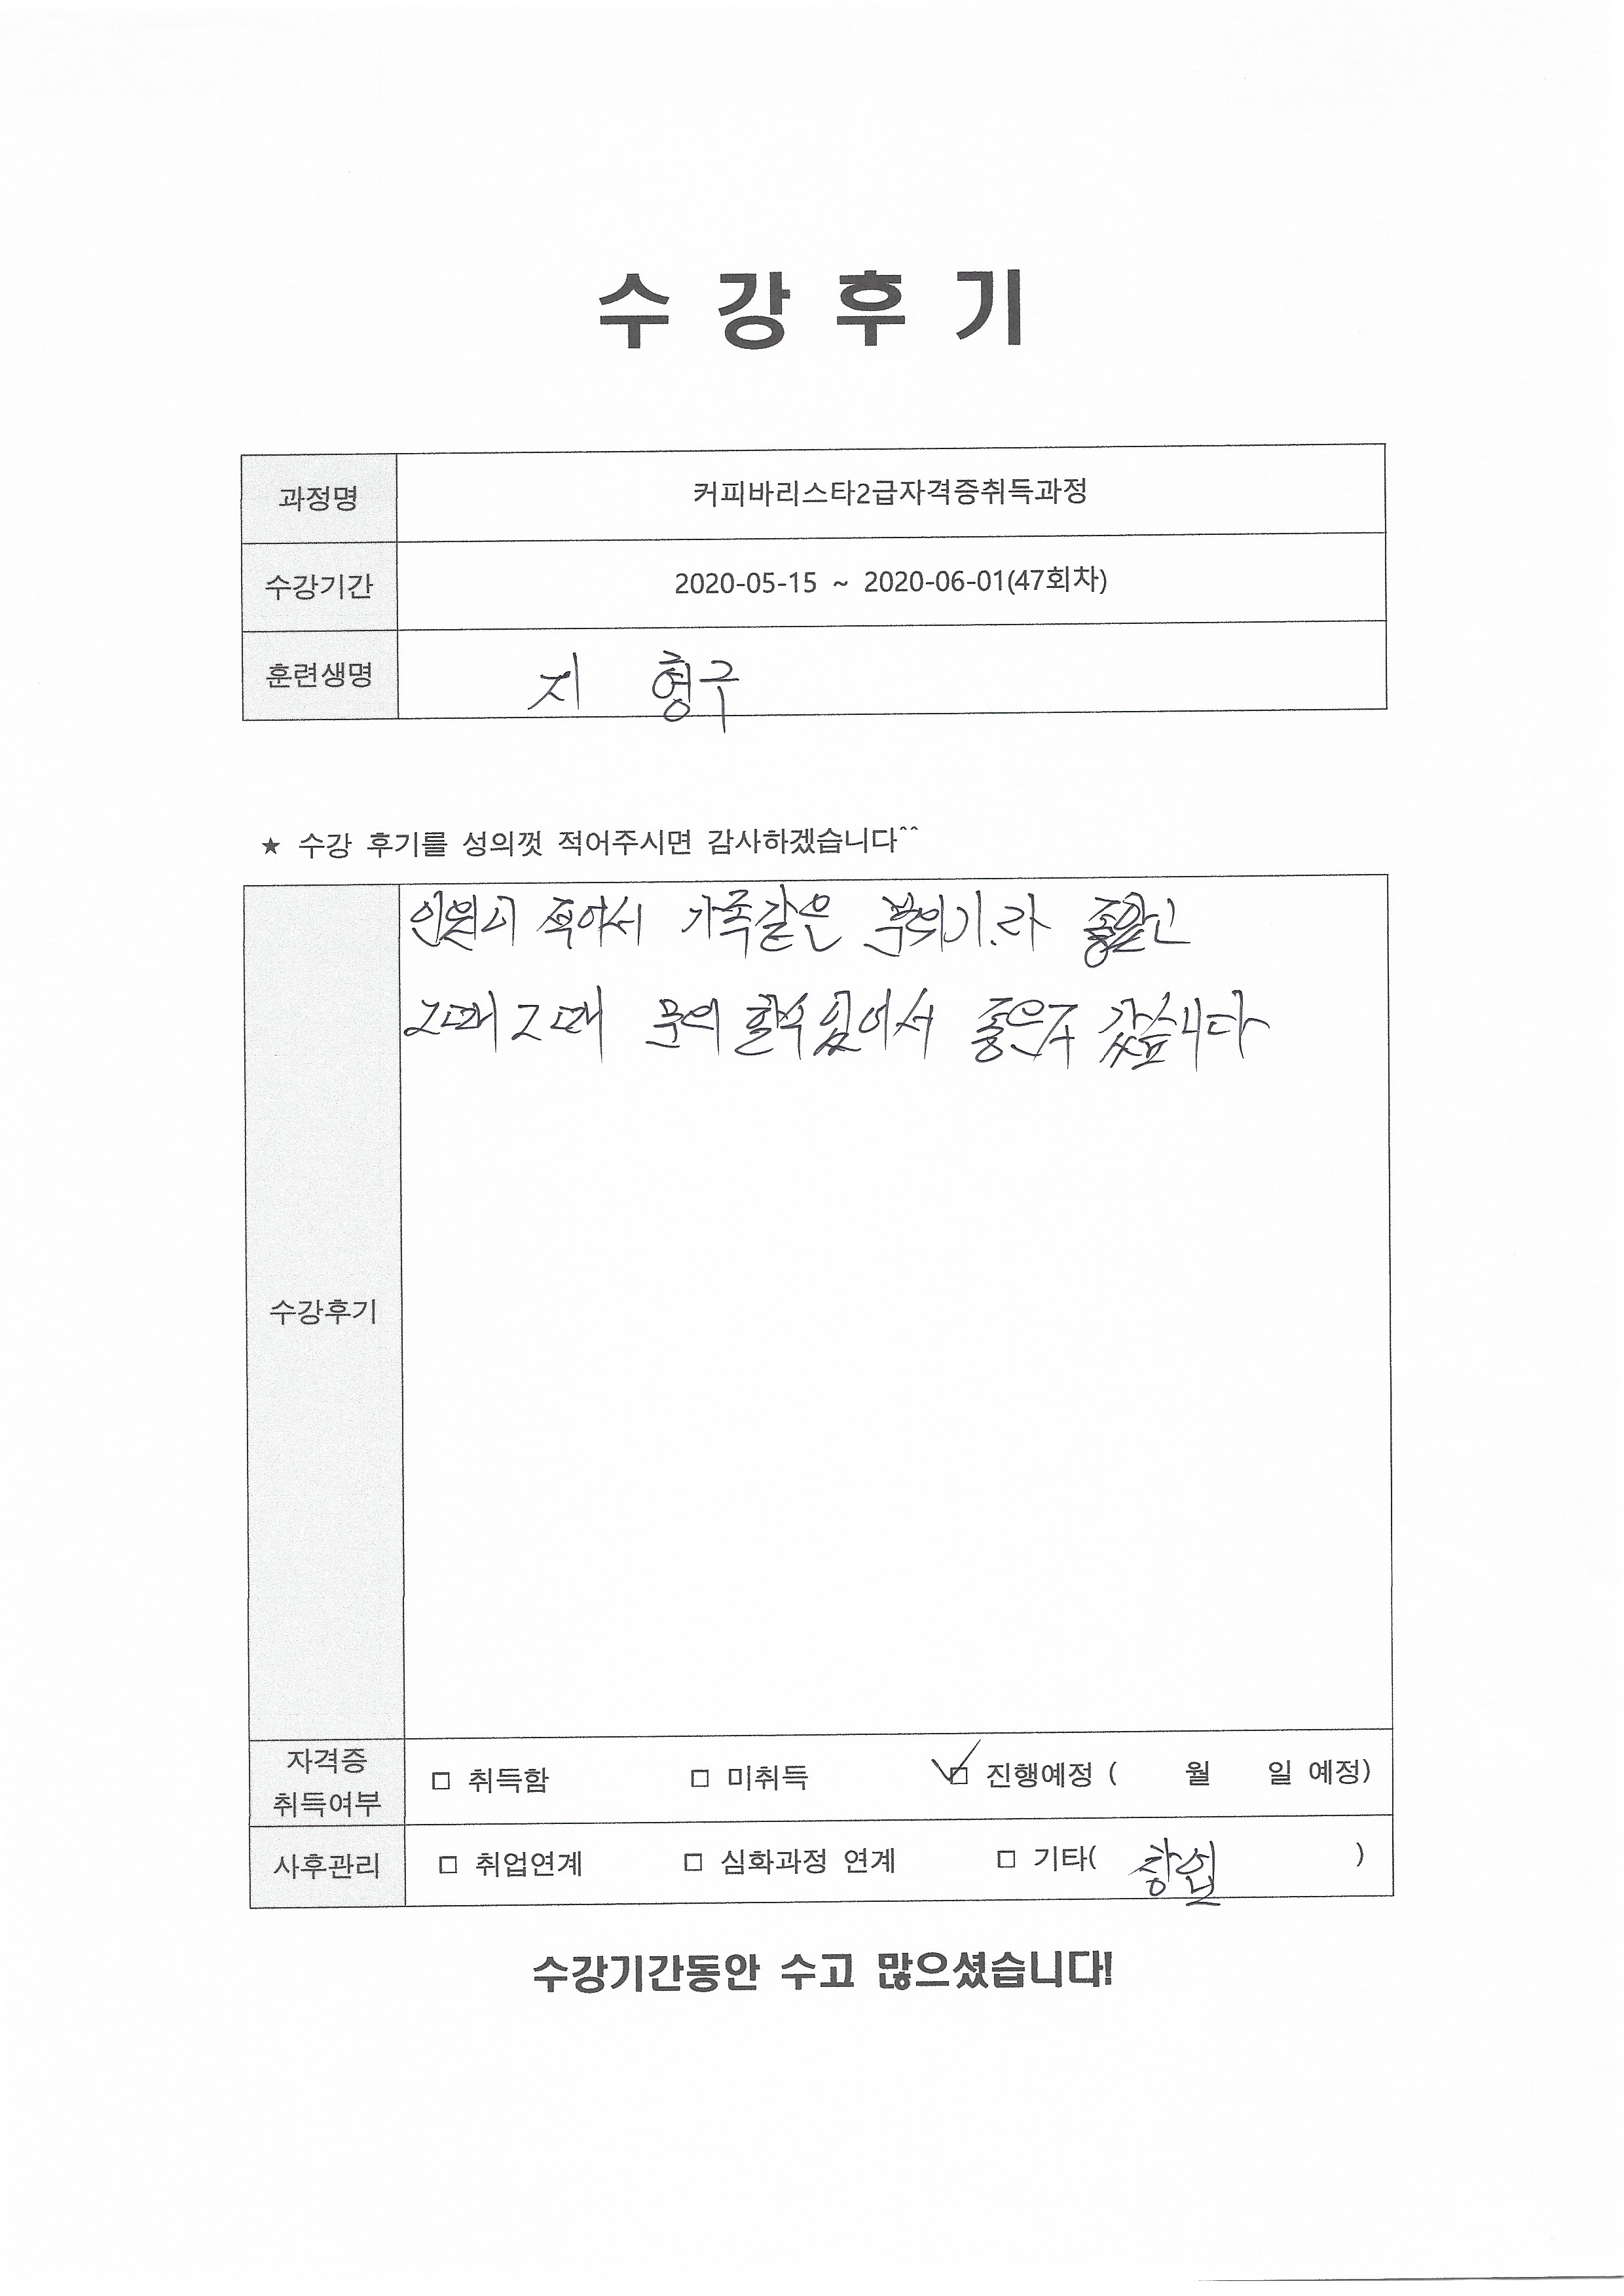 수 강 후 기
과정명 커피바리스타2급자격증취득과정
수강기간 2020-05-15 ~ 2020-06-01(47회차)
훈련생명 지 형구
★ 수강 후기를 성의껏 적어주시면 감사하겠습니다^^
인원이 적어서 가족같은 분위기라 좋았고
그때그때 문의 할수 있어서 좋은거 같습니다
수강후기
자격증
취득여부
□ 취득함 □ 미취득 □ 진행예정 ( 월 일 예정)
사후관리 □ 취업연계 □ 심화과정 연계 □ 기타( 창업 )
수강기간동안 수고 많으셨습니다!